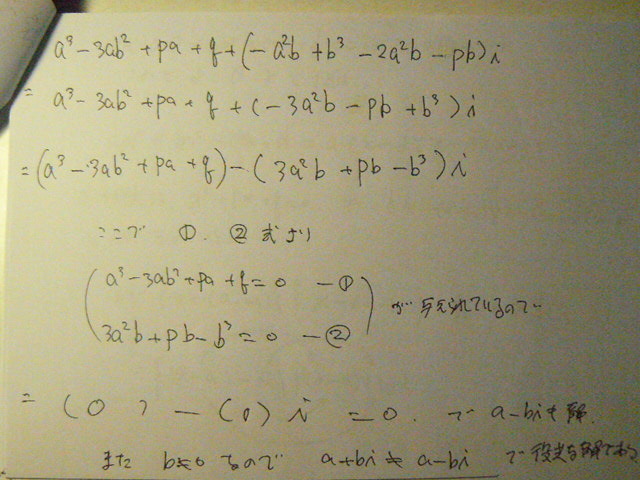 a³-3ab²+pa+q+(-a²b+b³-2a²b-pb)i
= a³-3ab²+pa+q+(-3a²b-pb+b³)i
=(a³-3ab²+pa+q)-(3a²b+pb-b³)i
ここで ①, ② 式より
a³-3ab²+pa+q=0 -①
が与えられているので
3a²b+pb-b³=0 -②
= (0)-(0)i=0. で a-biも解.
また b≠0 なので a+bi≠a-bi で